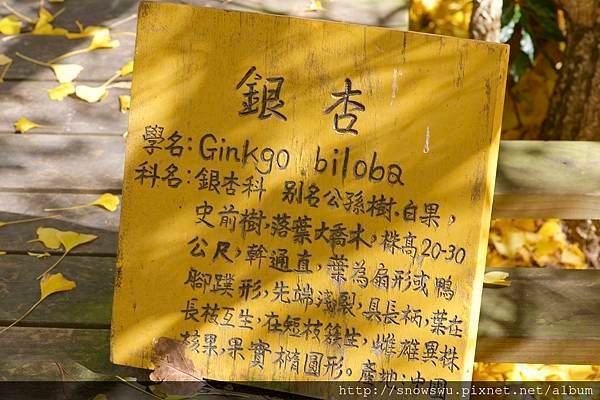 銀杏
學名:Ginkgo biloba
科名:銀杏科 別名公孫樹.白果,
史前樹.落葉大喬木,株高20-30
公尺,幹通直,葉為扇形或鴨
腳蹼形,先端淺裂,具長柄,葉在
長枝互生,在短枝簇生,雌雄異株
核果,果實橢圓形。產地:中國
http://snowswu.pixnet.net/album